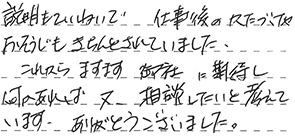 説明もていねいで 仕事後のかたづけや
おそうじもきちんとされていました。
これからますます御社に期待し
何かあれば又相談したいと考えて
います。ありがとうございました。